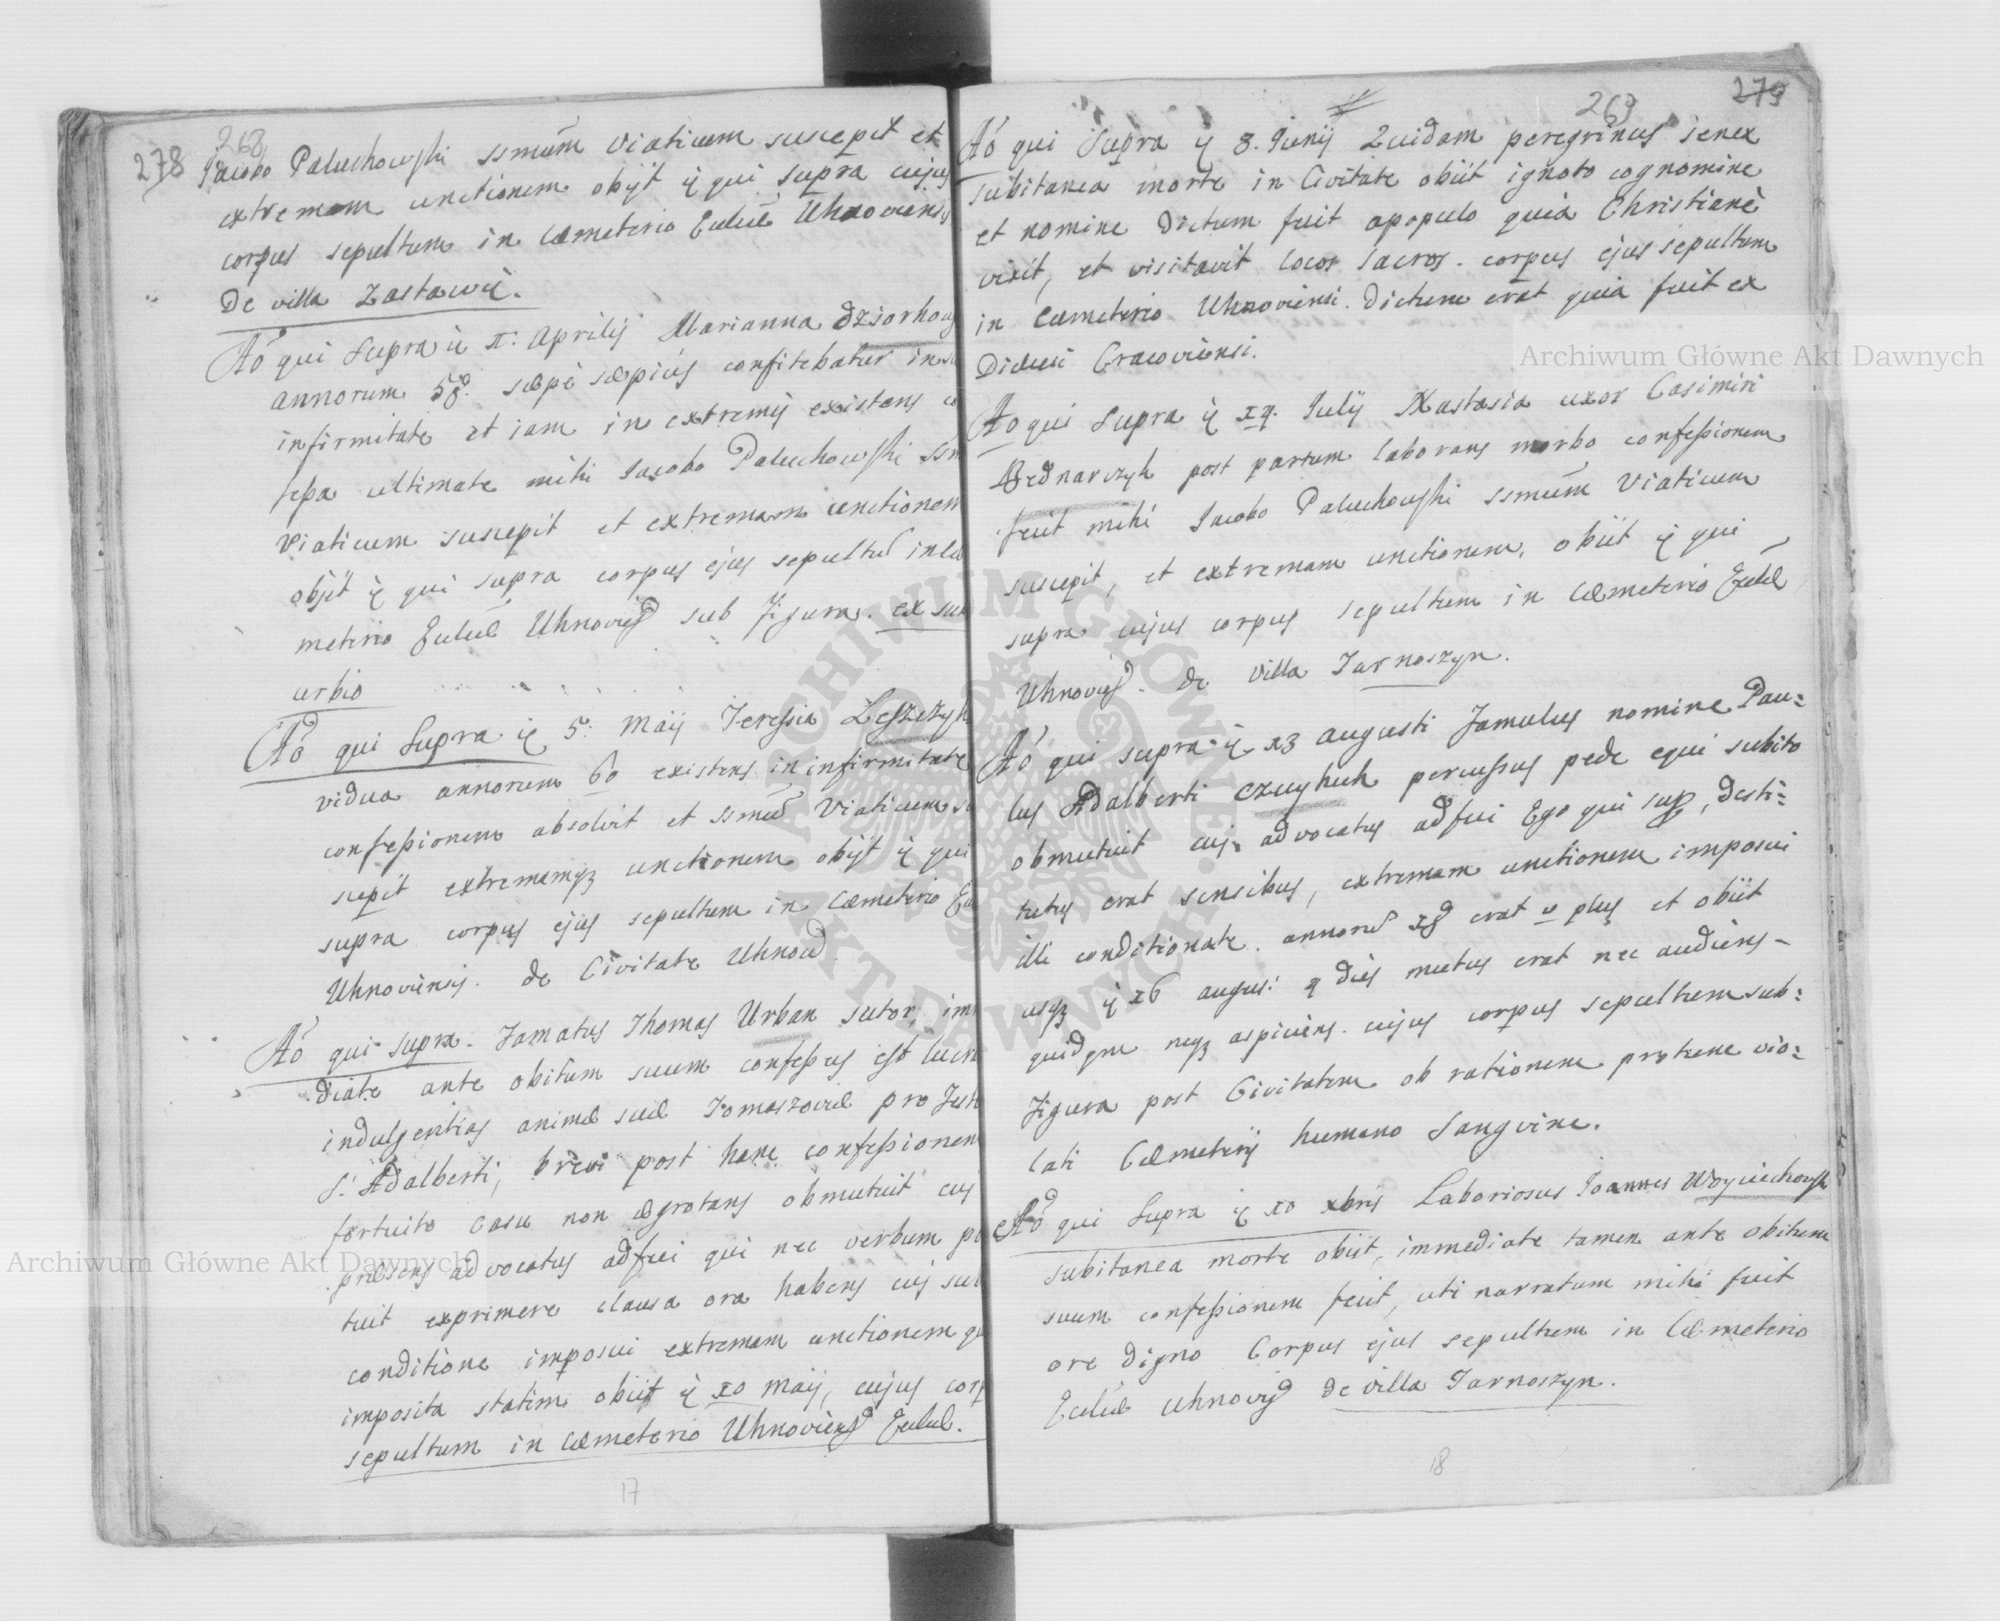 278 268
Jacobo Paluchowski ssmum Viaticum suscepit et
extremam unctionem obijt ij qui supra cujus
corpus sepultum in Cæmeterio Eccliæ Uhnoviensis
De villa Zastawie.
Aó qui supra ij π. Aprilis Marianna dziorhow
annorum 58. sæpè sæpiús confitebatur in su
infirmitate et iam in extremis existens co
fessa ultimate mihi Jacobo Paluchowski ssm
Viaticum suscepit et extremam unctionem
obijt ij qui supra corpus ejus sepultũ in cæ
meterio Eccliæ Uhnovień sub Figura. ex sub
urbio
Aó qui supra ij 5. Maij Teressia Leszczyk
vidua annorum 60 existens in infirmitate
confessionem absolvit et ssmũ Viaticum su
scepit extremamqз unctionem obijt ij qui
supra corpus ejus sepultum in Cæmeterio Ec
Uhnoviensis. de Civitate Uhnow
Aó qui supra. Famatus Thomas Urban sutor, im
diate ante obitum suum confessus est lucra
indulgentias animæ suæ Tomaszoviæ pro Festo
S. Adalberti, brevi post hanc confessionem
fortuito casu non ægrotans obmutuit cuj
præsens advocatus adfui qui nec verbum po
tuit exprimere clausa ora habens cuj sub
conditione imposui extremam unctionem qu
imposita statim obiit ij 10 Maij, cujus corp
sepultum in cæmeterio Uhnovień Eccliæ.
17
269 279
Aó qui supra ij 8. Junij Quidam peregrinus senex
subitanea morte in Civitate obiit ignoto cognomine
et nomine dictum fuit apopulo quia Christianè
vixit, et visitavit locos sacros. corpus ejus sepultum
in Cæmeterio Uhnoviensi. dictum erat quia fuit ex
Diæcesi Cracoviensi.
Ao qui supra ij 14. Julij Nastasia uxor Casimiri
Bednarczyk post partum laborans morbo confessionem
fecit mihi Jacobo Paluchowski ssmum Viaticum
suscepit, et extremam unctionem, obiit ij qui
supra cujus corpus sepultum in Cæmeterio Eccliæ
Uhnovień. de villa Tarnoszyn.
Aó qui supra ij 13 augusti Famulus nomine Pau=
lus Adalberti Czuyhuk percussus pede equi subito
obmutuit cuj. advocatus adfui Ego qui sup, desti=
tutus erat sensibus, extremam unctionem imposui
illi conditionate. annorũ 18 erat v plus et obiit
usqз ij 16 augus: 4 dies mutus erat nec audiens-
quidem neqз aspiciens. cujus corpus sepultum sub=
Figura post Civitatem ob rationem protunc vio=
lati Cæmeterij humano Sangvine.
Aó qui supra ij 10 xbris Laboriosus Joannes Woyciechowsk
subitanea morte obiit, immediate tamen ante obitum
suum confessionem fecit, uti narratum mihi fuit
ore digno Corpus ejus sepultum in Cæmeterio
Eccliæ Uhnovień de villa Tarnoszyn.
18
Archiwum Główne Akt Dawnych
Archiwum Główne Akt Dawnych
ARCHIWUM GŁÓWNE AKT DAWNYCH